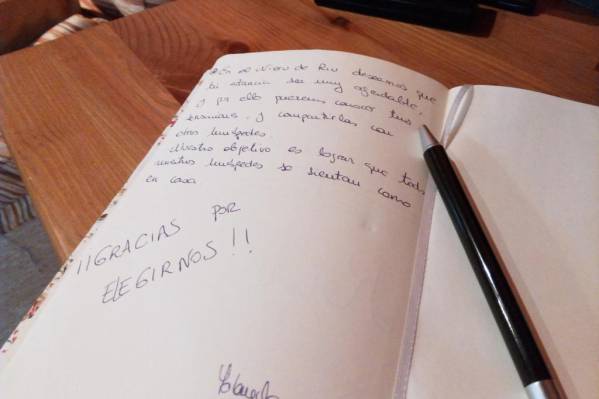 En el Nieu de Riu deseamos que
tu estancia sea muy agradable,
y por ello queremos conocer tus
y compartirlas con
otros huéspedes.
Nuestro objetivo es lograr que todos
nuestros huéspedes se sientan como
en casa
¡¡GRACIAS POR
ELEGIRNOS!!